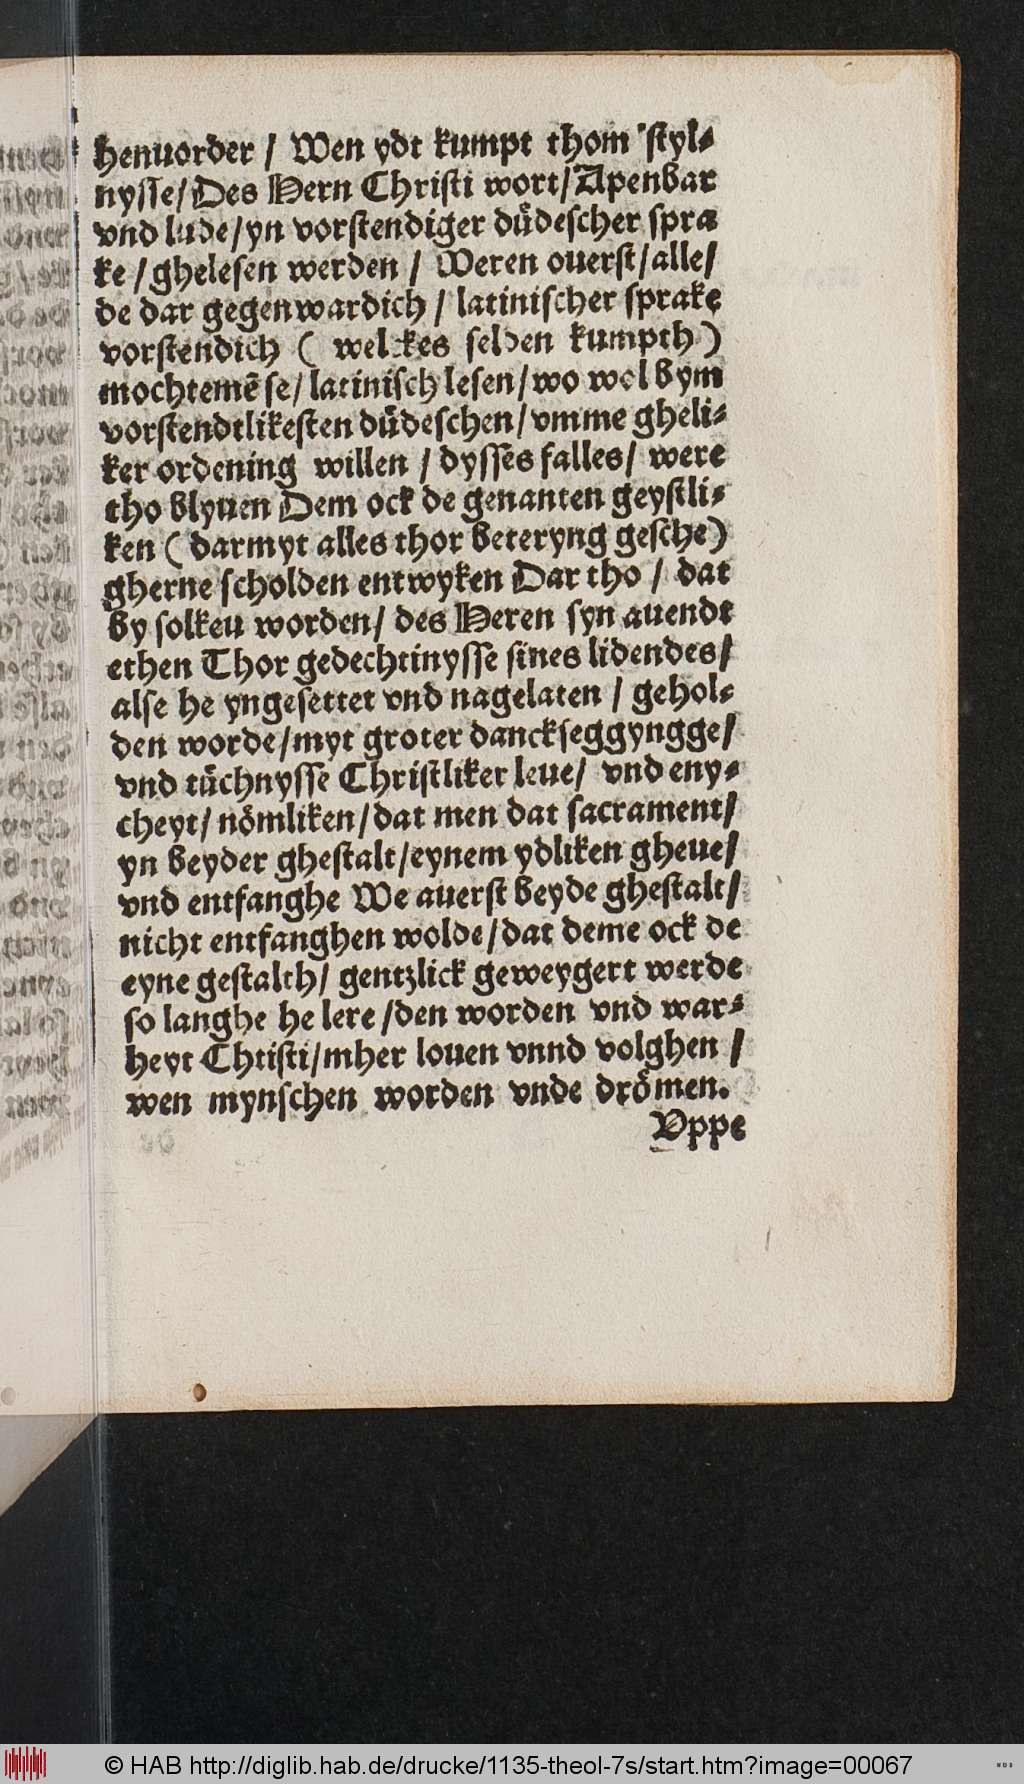 henuorder / Wen ydt kumpt thom styl⸗
nysse / Des Hern Christi wort / Apenbar
vnd lude / yn vorstendiger důdescher spra
ke / ghelesen werden / Weren ouerst / alle /
de dar gegenwardich / latinischer sprake
vorstendich ( welckes selden kumpth )
mochtemē se / latinisch lesen / wo wol bym
vorstendtlikesten důdeschen / vmme gheli⸗
ker ordening willen / dysses falles / were
tho blyuen Dem ock de genanten geystli⸗
ken ( darmyt alles thor beteryng gesche )
gherne scholden entwyken Dar tho / dat
by solkeu worden / des Heren syn auendt
ethen Thor gedechtinysse sines lidendes /
alse he yngesettet vnd nagelaten / gehol⸗
den worde / myt groter danckseggyngge /
vnd tůchnysse Christliker leue / vnd eny⸗
cheyt / nömliken / dat men dat sacrament /
yn beyder ghestalt / eynem ydliken gheue /
vnd entfanghe We auerst beyde ghestalt /
nicht entfanghen wolde / dat deme ock de
eyne gestalth / gentzlick geweygert werde
so langhe he lere / den worden vnd war⸗
heyt Chtisti / mher louen vnnd volghen /
wen mynschen worden vnde drömen.
Vppe
© HAB http://diglib.hab.de/drucke/1135-theol-7s/start.htm?image=00067